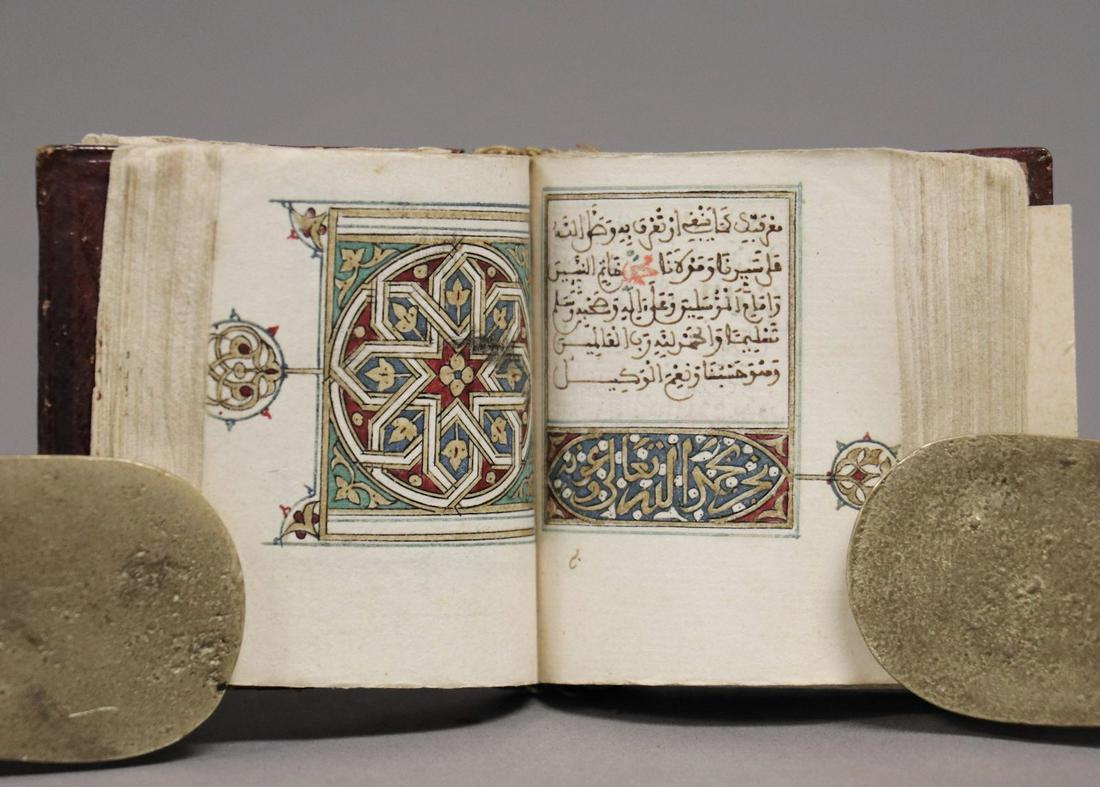 معرفتك كما ينبغي ان تعرف به وصلى الله
على سيدنا ومولانا محمد خاتم النبيين
وامام المرسلين وعلى اله وصحبه وسلم
تسليما والحمد لله رب العالمين
وهو حسبنا ونعم الوكيل
نجز بحمد الله تعالى وعونه